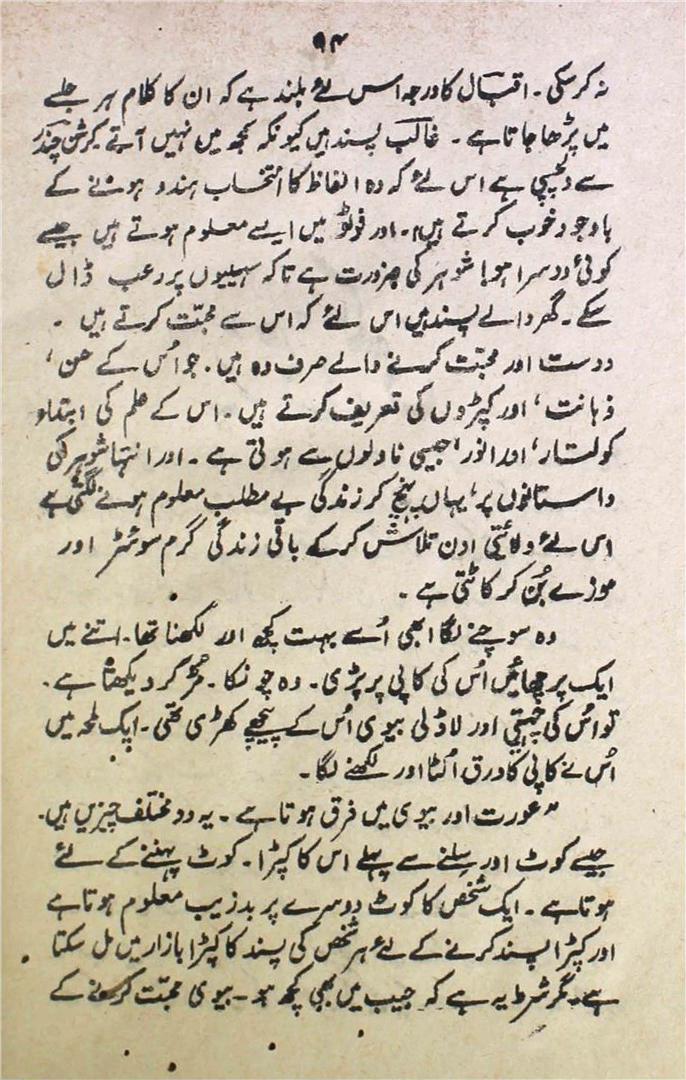 ۹۴
نہ کر سکی ۔ اقبال کا درجہ اس لئے بلند ہے کہ ان کا کلام ہر جلسے
میں پڑھا جاتا ہے ۔ غالب پسند ہیں کیونکہ سمجھ میں نہیں آتے کرشن چندر
سے دلچسپی ہے اس لئے کہ وہ الفاظ کا انتخاب ہندو ہونے کے
باوجود خوب کرتے ہیں ۔ اور فوٹو میں ایسے معلوم ہوتے ہیں جیسے
کوئی دوسرا ہو! شوہر کی ضرورت ہے تاکہ سہیلیوں پر رعب ڈال
سکے ۔ گھر والے پسند ہیں اس لئے کہ اس سے محبت کرتے ہیں ۔
دوست اور محبت کرنے والے صرف وہ ہیں ۔ جو اُس کے حسن ،
ذہانت ، اور کپڑوں کی تعریف کرتے ہیں ۔ اس کے علم کی ابتداء
کولتار ، اور انور ، جیسی ناولوں سے ہوتی ہے ۔ اور انتہا شوہر کی
داستانوں پر ، یہاں پہنچ کر زندگی بے مطلب معلوم ہونے لگتی ہے
اس لئے ولائتی اون تلاش کر کے باقی زندگی گرم سوئٹر اور
موزے بُن کر کاٹتی ہے ۔
وہ سوچنے لگا ابھی اُسے بہت کچھ اور لکھنا تھا ۔ اتنے میں
ایک پرچھائیں اُس کی کاپی پر پڑی ۔ وہ چونکا ۔ مُڑ کر دیکھتا ہے ۔
تو اُس کی چہیتی اور لاڈلی بیوی اُس کے پیچھے کھڑی تھی ۔ ایک لمحہ میں
اُس نے کاپی کا ورق اُلٹا اور لکھنے لگا ۔
" عورت اور بیوی میں فرق ہوتا ہے ۔ یہ دو مختلف چیزیں ہیں ۔
جیسے کوٹ اور سِلنے سے پہلے اس کا کپڑا ۔ کوٹ پہننے کے لئے
ہوتا ہے ۔ ایک شخص کا کوٹ دوسرے پر بدزیب معلوم ہوتا ہے
اور کپڑا پسند کرنے کے لئے ہر شخص کی پسند کا کپڑا بازار میں مل سکتا
ہے ۔ مگر شرط یہ ہے کہ جیب میں بھی کچھ ہو ۔ بیوی محبت کرنے کے